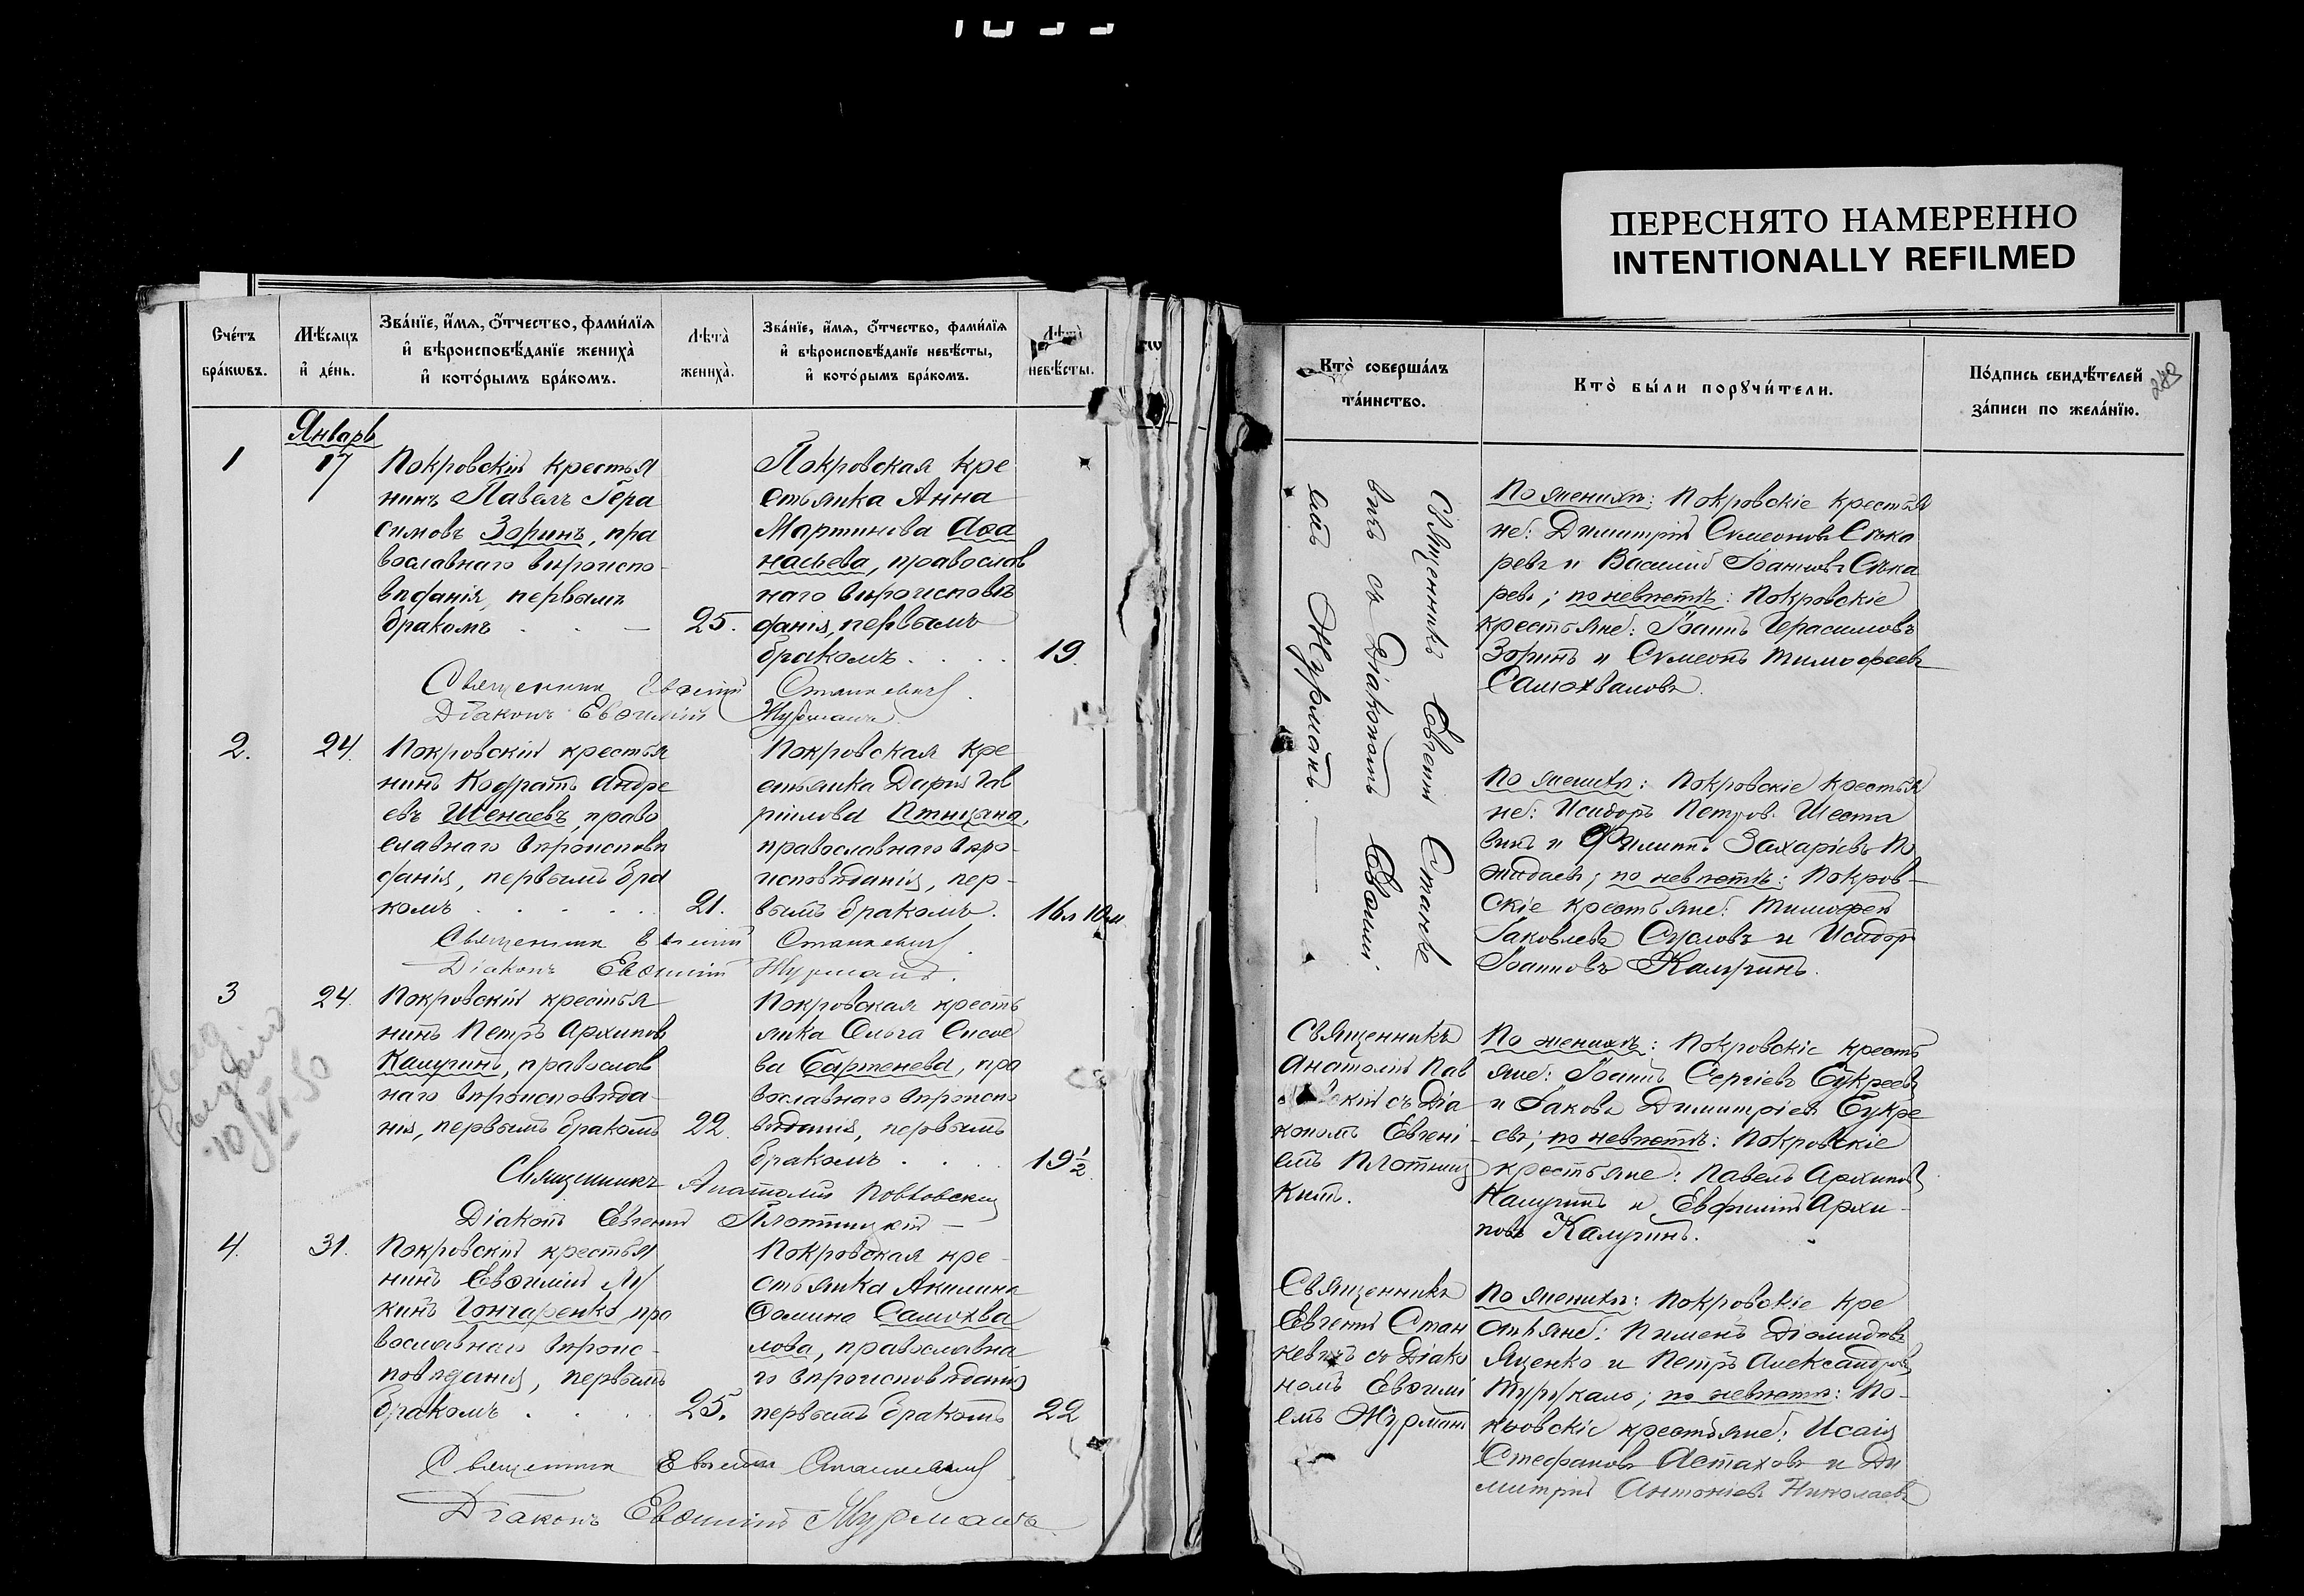 ПЕРЕСНЯТО НАМЕРЕННО
INTENTIONALLY REFILMED
Счéтъ
брáкѡвъ.
Мѣ́сяцъ
и҆ дéнь.
Звáнїе, и҆́мѧ, ѻ҆́тчество, фамѝлїѧ
и҆ вѣроисповѣ́данїе женихà
и҆ котóрымъ брáкомъ.
Лѣтà
женихà.
Звáнїе, и҆́мѧ, ѻ҆́тчество, фамѝлїѧ
и҆ вѣроисповѣ́данїе невѣ́сты,
и҆ котóрымъ брáкомъ.
Лѣтà
невѣ́сты.
Январь
1
17
Покровскій крестья
нинъ Павелъ Гера
симовъ Зоринъ, пра
вославнаго вѣроиспо-
вѣданія, первымъ
бракомъ
25.
Покровская кре
стьянка Анна
Мартинова Аѳа
насьева, православ
наго вѣроисповѣ
данія, первымъ
бракомъ
19.
Священникъ Евгеній Станкевичъ
Діаконъ Евѳимій Журманъ.
2.
24.
Покровскій крестья
нинъ Кодратъ Андре
евъ Шенаевъ, право
славнаго вѣроисповѣ
данія, первымъ бра
комъ
21.
Покровская кре
стьянка Дарія Гав
ріилова Птицына,
православнаго вѣро-
исповѣданія, пер-
вымъ бракомъ.
16 л 10 м
Священникъ Евгеній Станкевичъ
Діаконъ Евѳимій Журманъ.
3
24.
Покровскій крестья
нинъ Петръ Архиповъ
Калугинъ, православ
наго вѣроисповѣда-
нія, первымъ бракомъ
22.
Покровская кресть
янка Ольга Сисое
ва Бартенева, пра
вославнаго вѣроиспо
вѣданія, первымъ
бракомъ
19 1/2
10/VI-50
Священникъ Анатолій Павловскій
Діаконъ Евгеній Плотницкій
4.
31.
Покровскій крестья
нинъ Евѳимій Лу
кинъ Гончаренко, пра
вославнаго вѣроис-
повѣданія, первымъ
бракомъ
25.
Покровская кре-
стьянка Акилина
Ѳомина Самохва
лова, православна
го вѣроисповѣданія
первымъ бракомъ
22
Священникъ Евгеній Станкевичъ
Діаконъ Евѳимій Журманъ
Ктò совершáлъ
тáинство.
Ктò бы́ли порꙋчи́тели.
Пóдпись свидѣ́телей
зáписи по желáнїю.
Священникъ Евгеній Станке
вичъ съ Діакономъ Евѳимі
емъ Журманъ.
По женихѣ: Покровскіе крестья
не: Димитрій Симеоновъ Сѣка
ревъ и Василій Іоанновъ Сѣка
ревъ; по невѣстѣ: Покровскіе
крестьяне: Іоаннъ Герасимовъ
Зоринъ и Симеонъ Тимоѳеевъ
Самохваловъ.
По женихѣ: Покровскіе крестья
не: Исидоръ Петров. Шеста
и Филиппъ Захаріевъ По
жидаевъ; по невѣстѣ: Покров-
скіе крестьяне: Тимоѳей
Іаковлевъ Сусловъ и Исидоръ
Іоанновъ Калугинъ.
Священникъ
Анатолій Пав
ловскій съ Діа
кономъ Евгені-
емъ Плотниц
кимъ.
По женихѣ: Покровскіе кресть
яне: Іоаннъ Сергіевъ Букреевъ
и Іаковъ Димитріевъ Букре
евъ; по невѣстѣ: Покровскіе
крестьяне: Павелъ Архиповъ
Калугинъ и Евфимій Архи-
повъ Калугинъ.
Священникъ
Евгеній Стан
кевичъ съ Діако
номъ Евѳимі
емъ Журманъ
По женихѣ: Покровскіе кре
стьяне: Пименъ Діомидовъ
Яценко и Петръ Александровъ
Турукало; по невѣстѣ: По-
кровскіе крестьяне: Исаія
Стефановъ Астаховъ и Ди
митрій Антоніевъ Николаевъ